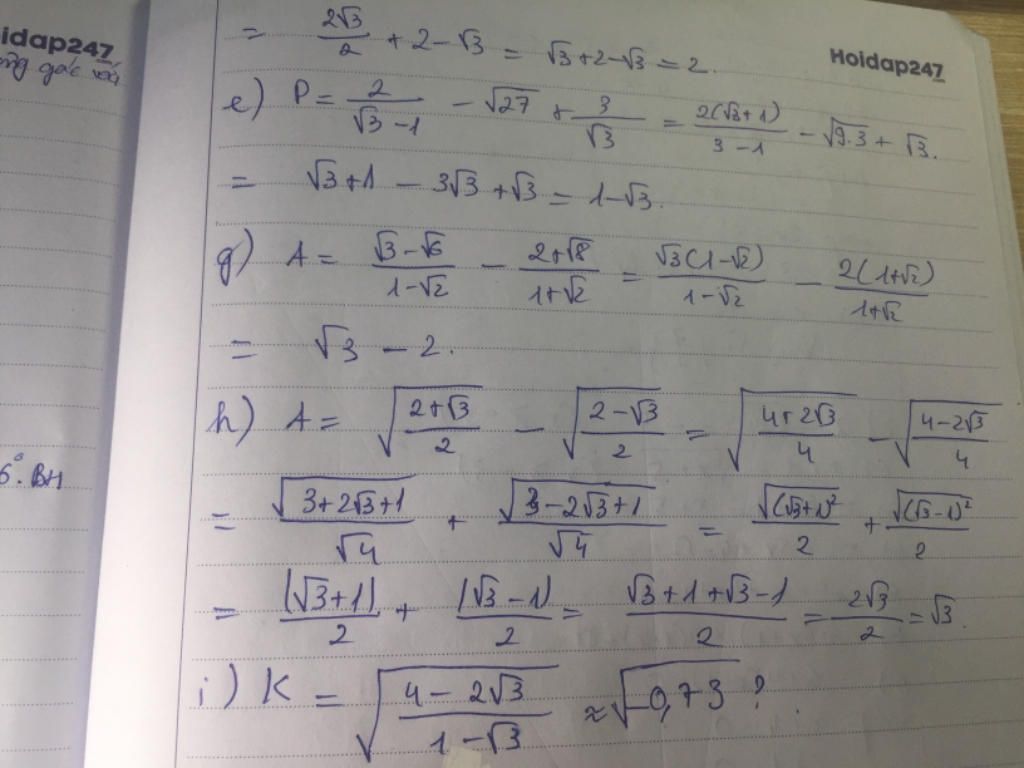 oidap247
Hoidap247
= 2√3/2 + 2 - √3 = √3 + 2 - √3 = 2.
e) P = 2/(√3 - 1) - √27 + 3/√3 = 2(√3 + 1)/(3 - 1) - √9.3 + √3.
= √3 + 1 - 3√3 + √3 = 1 - √3.
g) A = (√3 - √6)/(1 - √2) - (2 + √8)/(1 + √2) = √3(1 - √2)/(1 - √2) - 2(1 + √2)/(1 + √2)
= √3 - 2.
h) A = √((2 + √3)/2) - √((2 - √3)/2) = √((4 + 2√3)/4) - √((4 - 2√3)/4)
= √(3 + 2√3 + 1)/√4 + √(3 - 2√3 + 1)/√4 = √((√3 + 1)²)/2 + √((√3 - 1)²)/2
= |√3 + 1|/2 + |√3 - 1|/2 = (√3 + 1 + √3 - 1)/2 = 2√3/2 = √3.
i) K = √((4 - 2√3)/(1 - √3)) ≈ √(-0,73) ?
6°. BH